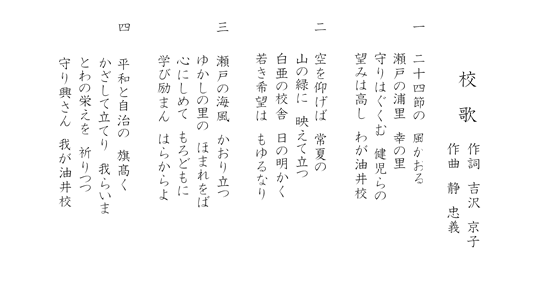 校歌
作詞 吉沢 京子
作曲 静 忠義
一 二十四節の 風かおる
瀬戸の浦里 幸の里
守りはぐくむ 健児らの
望みは高し わが油井校
二 空を仰げば 常夏の
山の緑に 映えて立つ
白亜の校舎 日の明かく
若き希望は もゆるなり
三 瀬戸の海風 かおり立つ
ゆかしの里の ほまれをば
心にしめて もろどもに
学び励まん はらからよ
四 平和と自治の 旗高く
かざして立てり 我らいま
とわの栄えを 祈りつつ
守り興さん 我が油井校